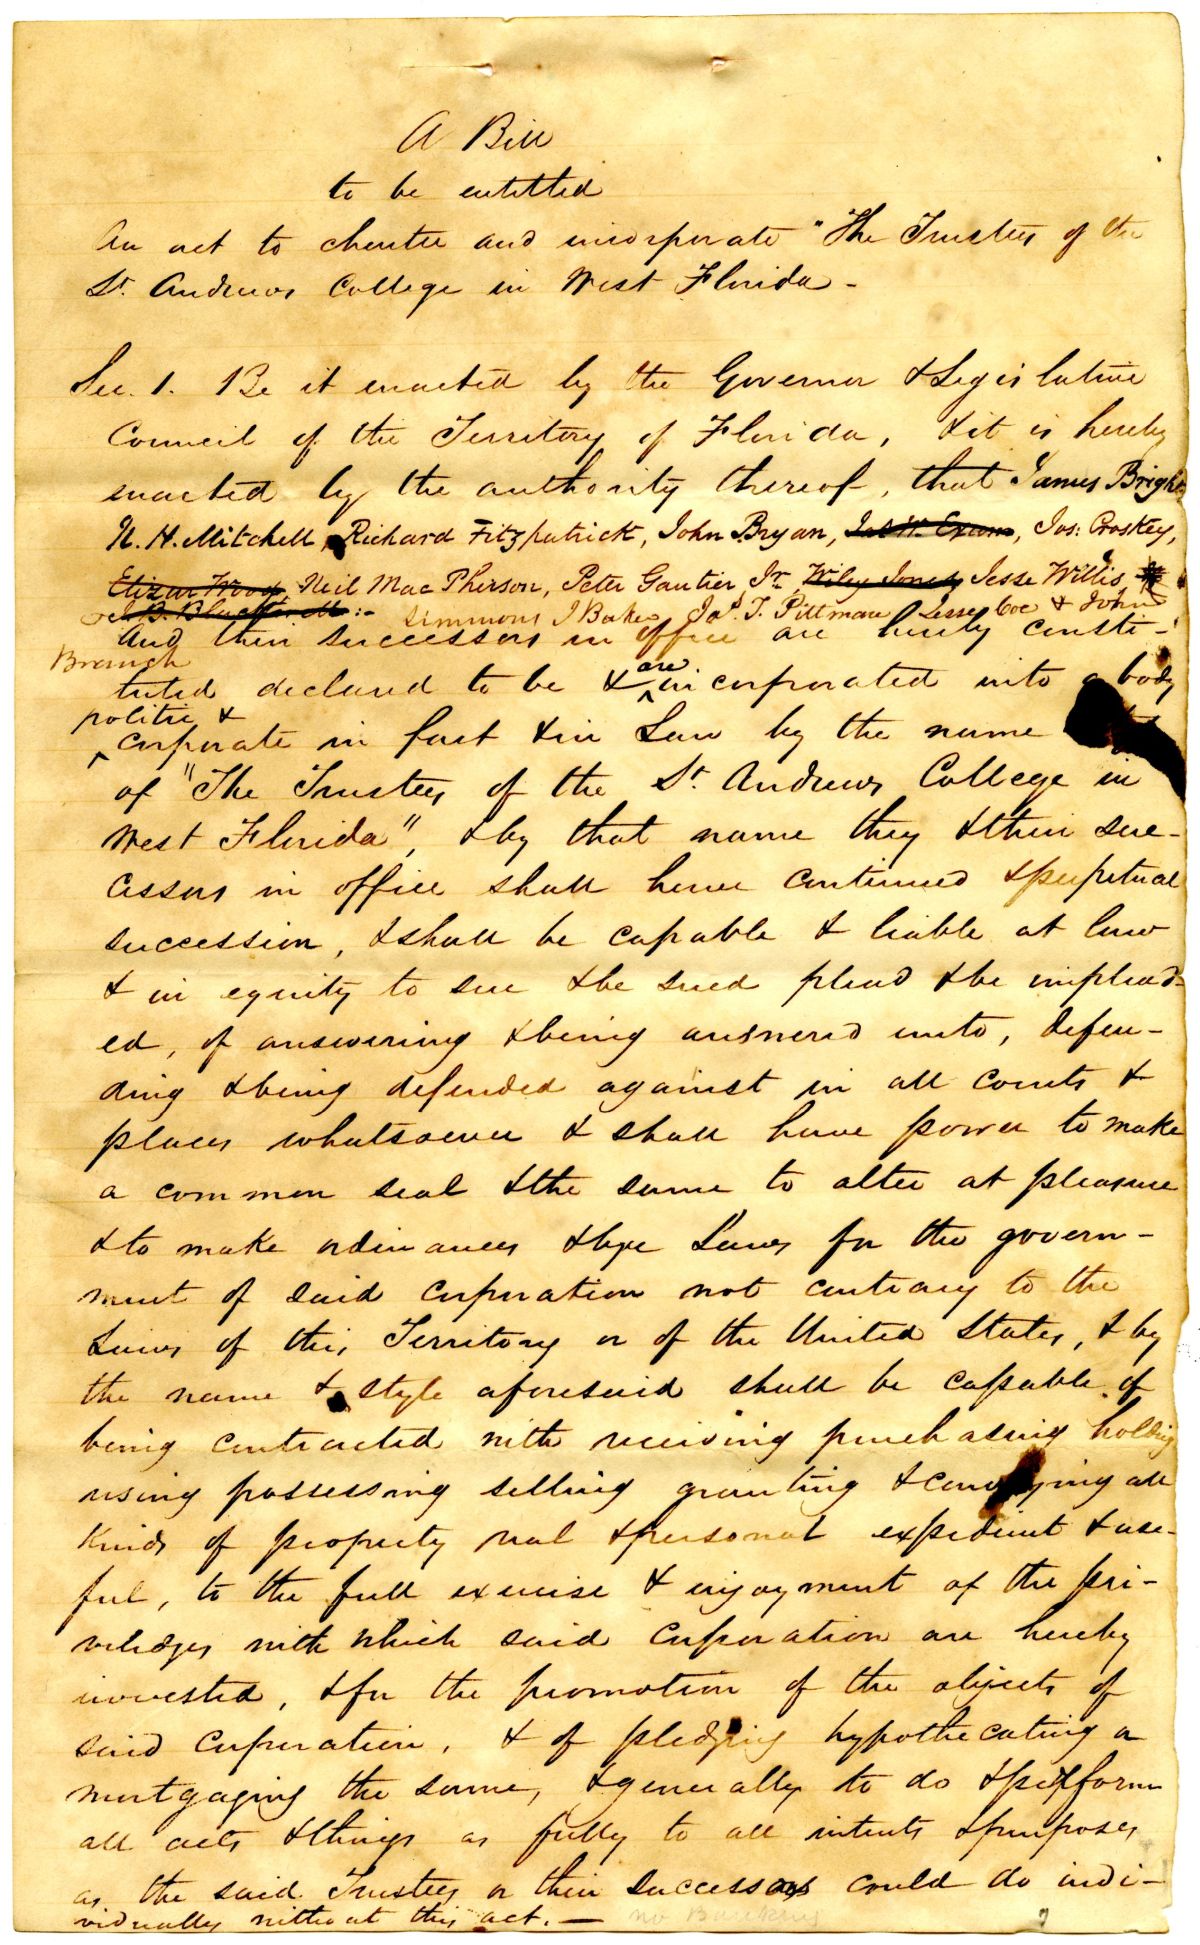 A Bill
to be entitled
An act to charter and incorporate "The Trustees of the
St. Andrews College in West Florida -
Sec. 1. Be it enacted by the Governor & Legislative
Council of the Territory of Florida, & it is hereby
enacted by the authority thereof, that James Bright
N. H. Mitchell, Richard Fitzpatrick, John Bryan, Jos: Croskey,
Elizar Wood, Neil MacPherson, Peter Gautier Jr. Wiley Jones, Jesse Willis,
Simmons J Baker Jas. T. Pittman Jesse Coe & John
Branch
and their successors in office are hereby consti-
tuted declared to be & are incorporated into a body
politic &
corporate in fact & in Law by the name
of "The Trustees of the St. Andrews College in
West Florida", & by that name they & their suc-
cessors in office shall have continued & perpetual
succession, & shall be capable & liable at law
& in equity to sue & be sued plead & be implead-
ed, of answering & being answered unto, defen-
ding & being defended against in all courts &
places whatsoever & shall have power to make
a common seal & the same to alter at pleasure
& to make ordinances & bye Laws for the govern-
ment of said corporation not contrary to the
Laws of this Territory or of the United States, & by
the name & style aforesaid shall be capable of
being contracted with receiving purchasing holding
using possessing selling granting & conveying all
kinds of property real & personal expedient & use-
ful, to the full exercise & enjoyment of the pri-
veledges with which said corporation are hereby
invested, & for the promotion of the objects of
said corporation, & of pledging hypothecating or
mortgaging the same, & generally to do & perform
all acts & things as fully to all intents & purposes
as the said Trustees or their successors could do indi-
vidually without this act. — no Banking